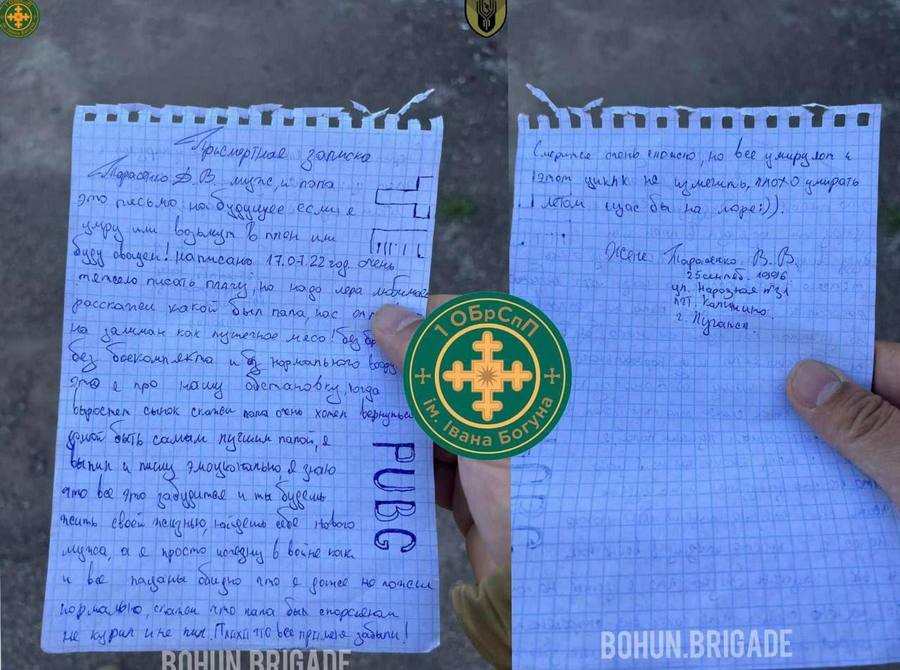 Присмертная записка
Тарасенко Д.В. муж, и папа
это письмо на будущее если я
умру или возьмут в плен или
буду овощем! написано 17.07.22 год очень
тяжело писать плачу, но надо лера любимая
расскажи какой был папа, нас
на заман как пушечное мясо! без
без боекомплекта и без нормального
это я про нашу обстановку, когда
выростет сынок скажи папа очень хотел вернуться
домой быть самым лучшим папой, я
выпил и пишу эмоционально я знаю
что все это забудится и ты будешь
жить своей жизнью, найдешь себе нового
мужа, а я просто исчезну в войне как
и все пацаны обидно что я даже не пожил
нормально, скажи что папа был спорсменом
не курил и не пил. про меня забыли!
PUBG
Смерится очень сложно, но все умирули и
этот цикл не изменить, плохо умирать
летом щас бы на море:)).
Жене Тарасенко В.В
25 сентяб. 1996
ул. Народная
г. Луганск.
1 ОБрСпП
ім. Івана Богуна
BOHUN.BRIGADE
BOHUN.BRIGADE